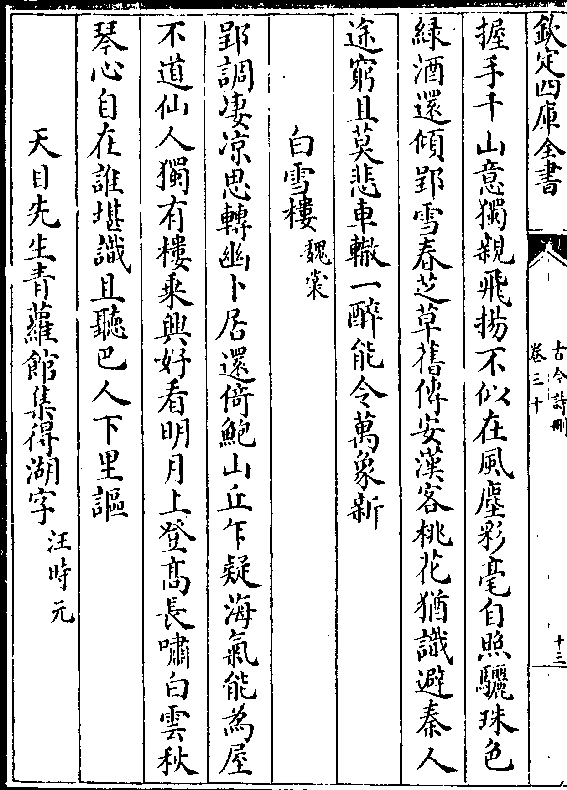 欽定四庫全書
古今詩刪
卷三十
十三
握手千山意獨親飛揚不似在風塵彩毫自照驪珠色
緑酒還傾郢雪春芝草舊傳安漢客桃花猶識避秦人
途窮且莫悲車轍一醉能令萬象新
白雪樓 魏裳
郢調凄凉思轉幽卜居還倚鮑山丘乍疑海氣能為屋
不道仙人獨有樓乘興好看明月上登高長嘯白雲秋
琴心自在誰堪識且聽巴人下里謳
天目先生青蘿館集得湖字 汪時元